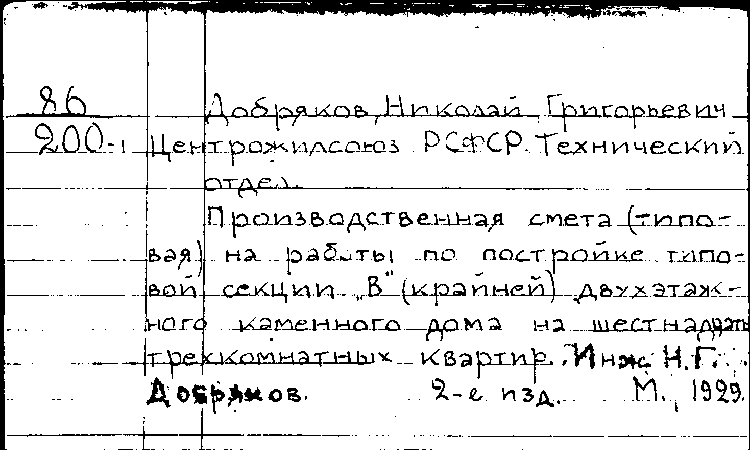 86 Добряков, Николай Григорьевич
200-1 Центрожилсоюз РСФСР. Технический
отдел.
Производственная смета (типо-
вая) на работы по постройке типо-
вой секции „В" (крайней) двухэтаж-
ного каменного дома на шестнадцать
трехкомнатных квартир. Инж. Н.Г.
Добряков. 2-е изд. М., 1929.